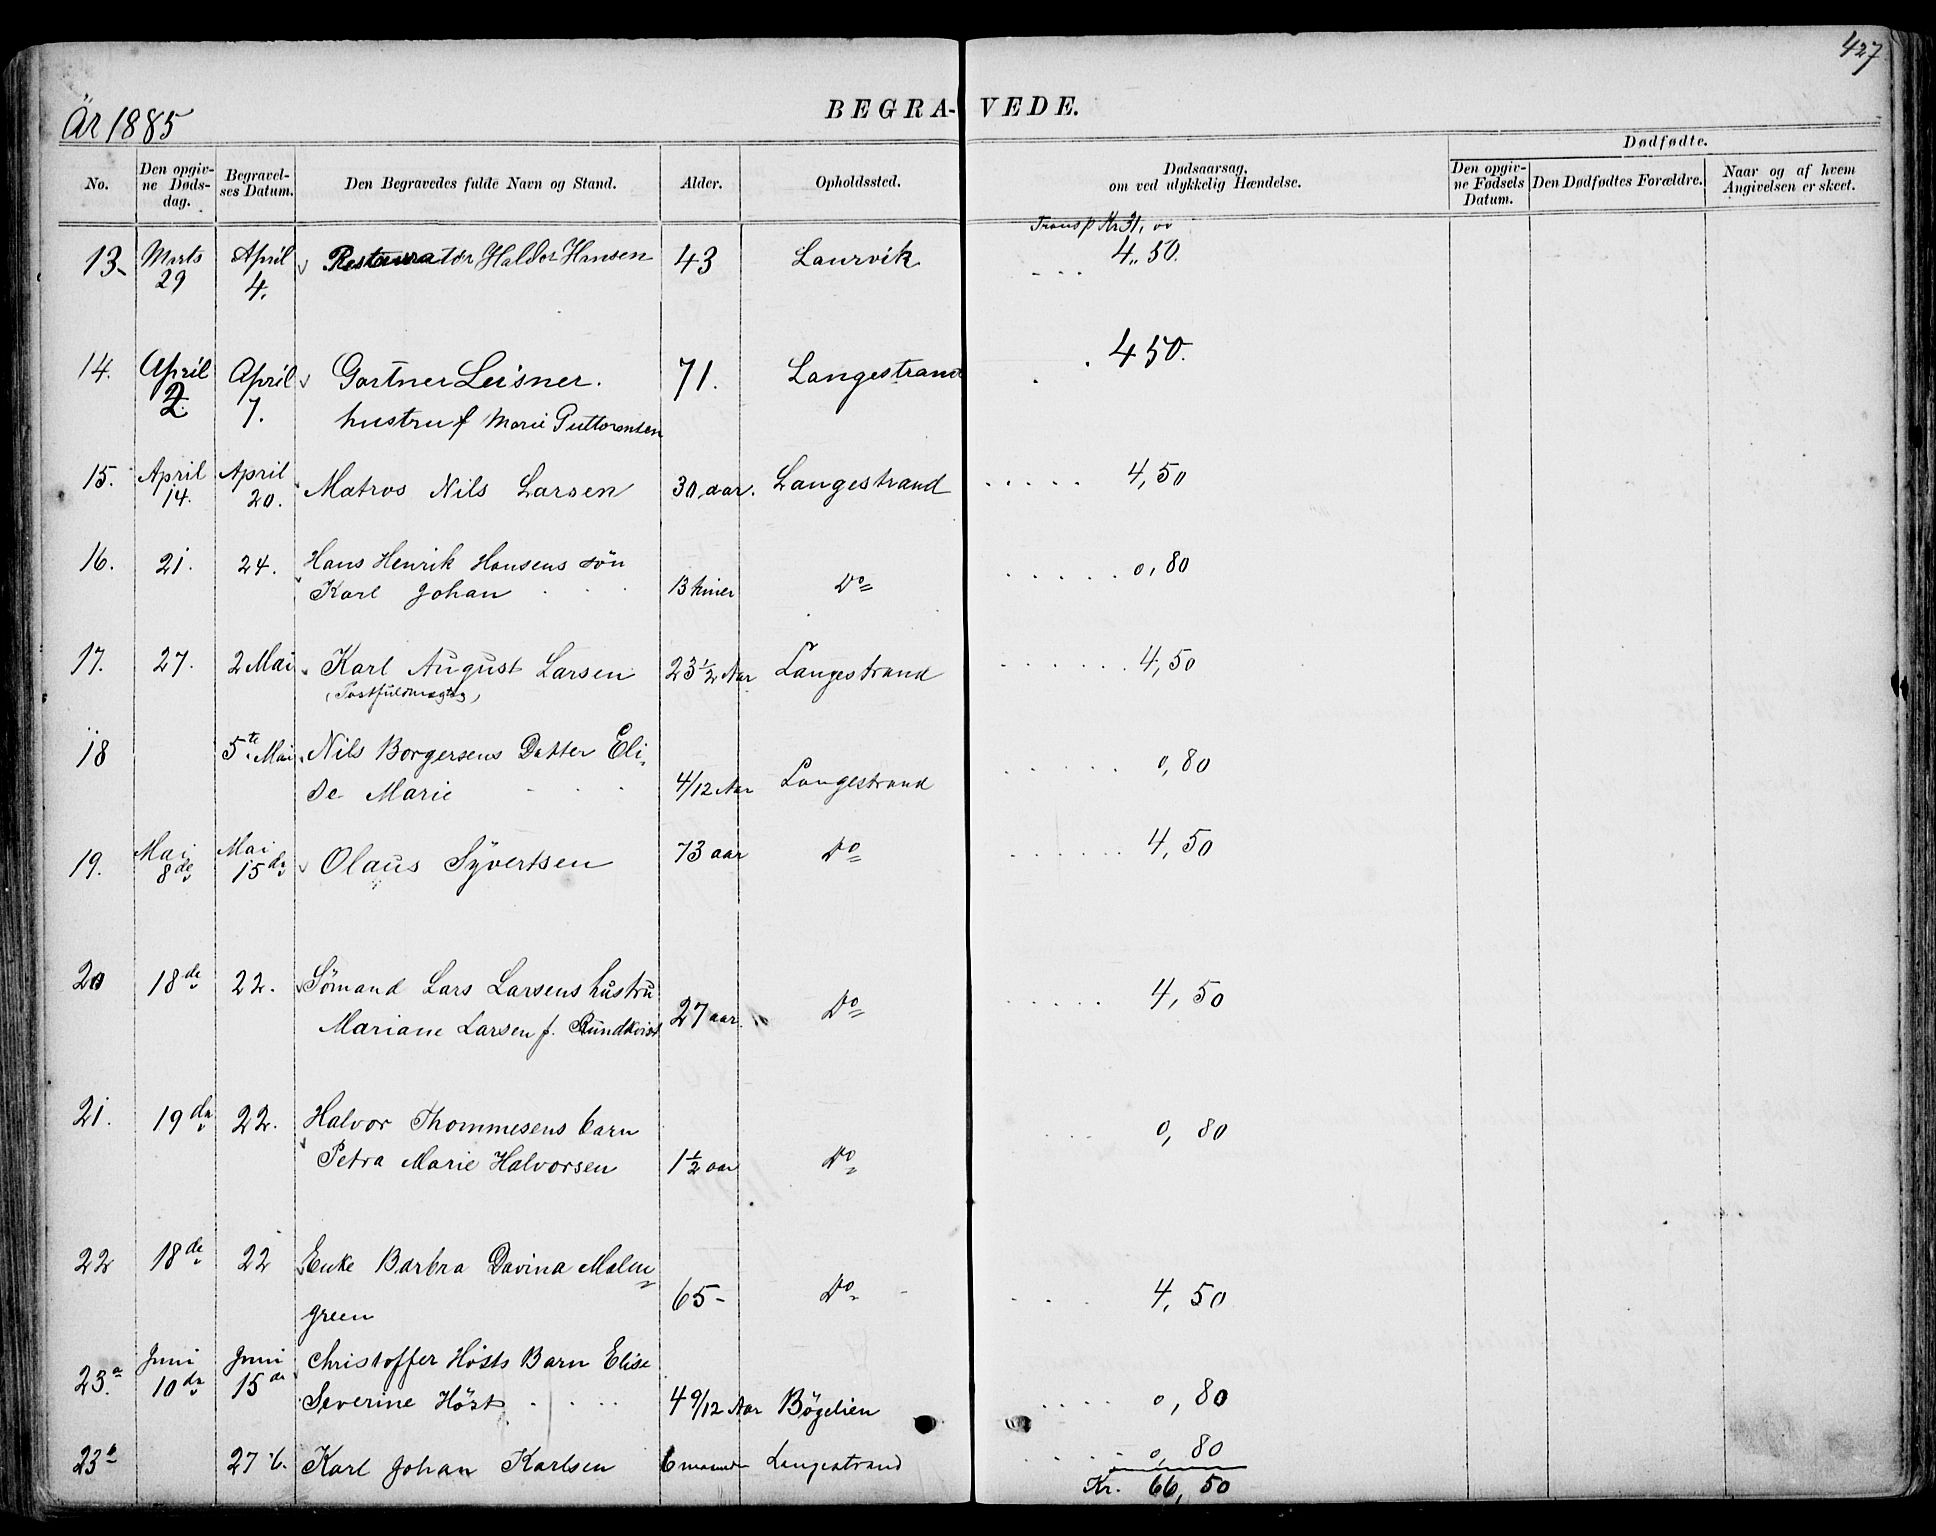 427
År 1885
BEGRA- VEDE.
No.
Den opgiv-
ne Døds-
dag.
Begravel-
ses Datum.
Den Begravedes fulde Navn og Stand.
Alder.
Opholdssted.
Dødsaarsag,
om ved ulykkelig Hændelse.
Dødfødte.
Den opgiv-
ne Fødsels
Datum.
Den Dødfødtes Forældre.
Naar og af hvem
Angivelsen er skeet.
Transp Kr 31, 00
13 Marts 29 April 4. Restauratør Haldor Hansen 43 Laurvik 4,50.
14. April 2. April 7. Gartner Leisner. 71. Langestrand 4 50.
hustru f Marie
15. April 14. April 20. Matros Nils Larsen 30 aar. Langestrand 4,50
16. 21. 24. Hans Henrik Hansens søn
Karl Johan 13 timer Do 0,80
17. 27. 2 Mai Karl August Larsen 23 1/2 Aar Langestrand 4,50
(Postfuldmægtig)
18 5te Mai Nils Borgersens Datter Eli-
se Marie 4/12 Aar Langestrand 0,80
19. Mai 8de Mai 15de Olaus Syvertsen 73 aar Do 4,50
20 18de 22. Sømand Lars Larsens hustru
Mariane Larsen f. Rundkvist 27 aar. Do 4,50
21. 19de 22. Halvor Thommesens barn
Petra Marie Halvorsen 1 1/2 aar Do 0,80
22 18de 22 Enke Barbra Davina Malm-
green 65- Do 4,50
23.a Juni 10de Juni 15de Christoffer Høsts Barn Elise
Severine Høst 4 9/12 Aar Bøgelien 0,80
23b 27/6. Karl Johan Karlsen 6 maaneder Langestrand 0,80
Kr. 66,50